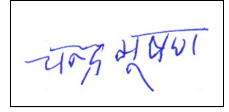 चन्द्र भूषण